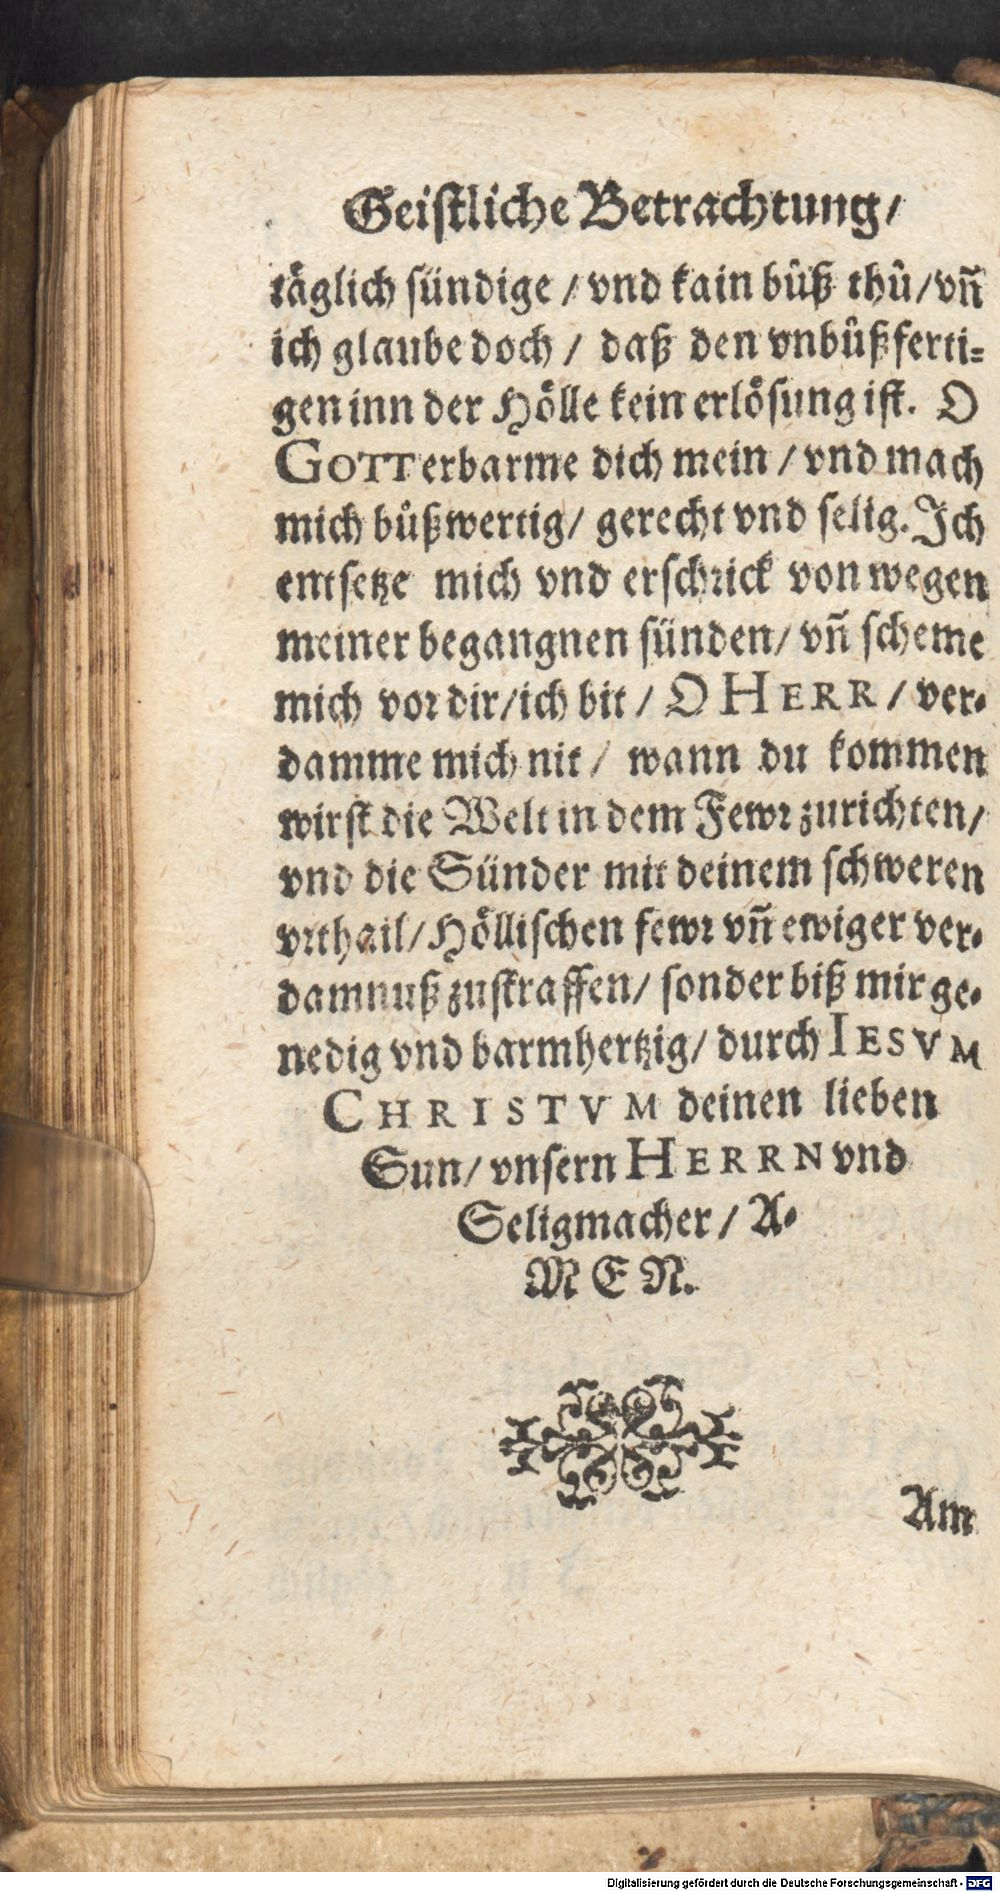 Geistliche Betrachtung/
täglich sündige / vnd kain bůß thů/vñ
ich glaube doch / daß den vnbůßferti-
gen inn der Hölle kein erlösung ist. O
GOTT erbarme dich mein / vnd mach
mich bůßwertig/ gerecht vnd selig. Ich
entsetze mich vnd erschrick von wegen
meiner begangnen sünden/ vñ scheme
mich vor dir/ich bit / O HERR / ver-
damme mich nit / wann du kommen
wirst die Welt in dem Fewr zurichten/
vnd die Sünder mit deinem schweren
vrthail/Höllischen fewr vñ ewiger ver-
damnuß zustraffen/ sonder biß mir ge-
nedig vnd barmhertzig/ durch IESVM
CHRISTVM deinen lieben
Sun/ vnsern HERRN vnd
Seligmacher / A-
MEN.
Am
Digitalisierung gefördert durch die Deutsche Forschungsgemeinschaft - DFG